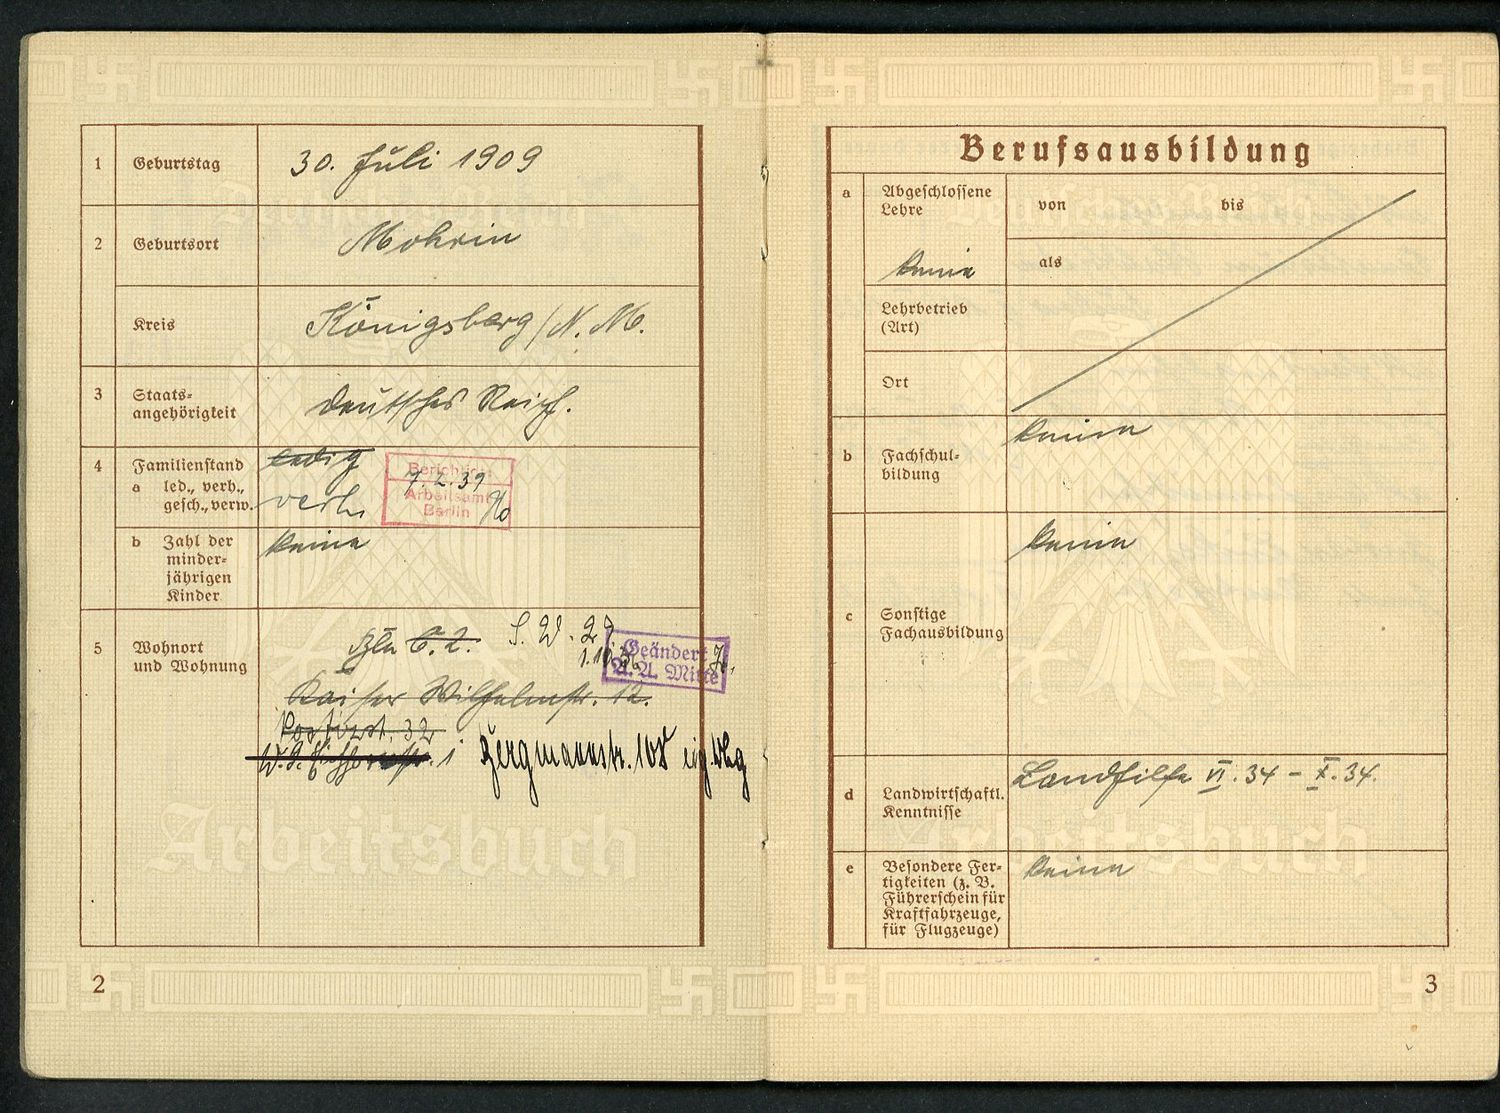 1 Geburtstag 30. Juli 1909
2 Geburtsort Mohrin
Kreis Königsberg/N. M.
3 Staats-
angehörigkeit deutsches Reich.
4 Familienstand ledig
a led., verh.,
gesch., verw. verh.
Berichtigt
7. 2. 39
Arbeitsamt
Berlin
b Zahl der keine
minder-
jährigen
Kinder
5 Wohnort
und Wohnung
Bln C. 2. S. W. 29
1.10.
Geändert
A. A. Mitte
Kaiser Wilhelmstr. 12.
32
Bergmannstr. 108
Arbeitsbuch
2
Berufsausbildung
a Abgeschlossene
Lehre
keine
von bis
als
Lehrbetrieb
(Art)
Ort
b Fachschul-
bildung
keine
c Sonstige
Fachausbildung
keine
d Landwirtschaftl.
Kenntnisse
Landhilfe VI. 34 – X. 34.
e Besondere Fer-
tigkeiten (z. B.
Führerschein für
Kraftfahrzeuge,
für Flugzeuge)
keine
Arbeitsbuch
3